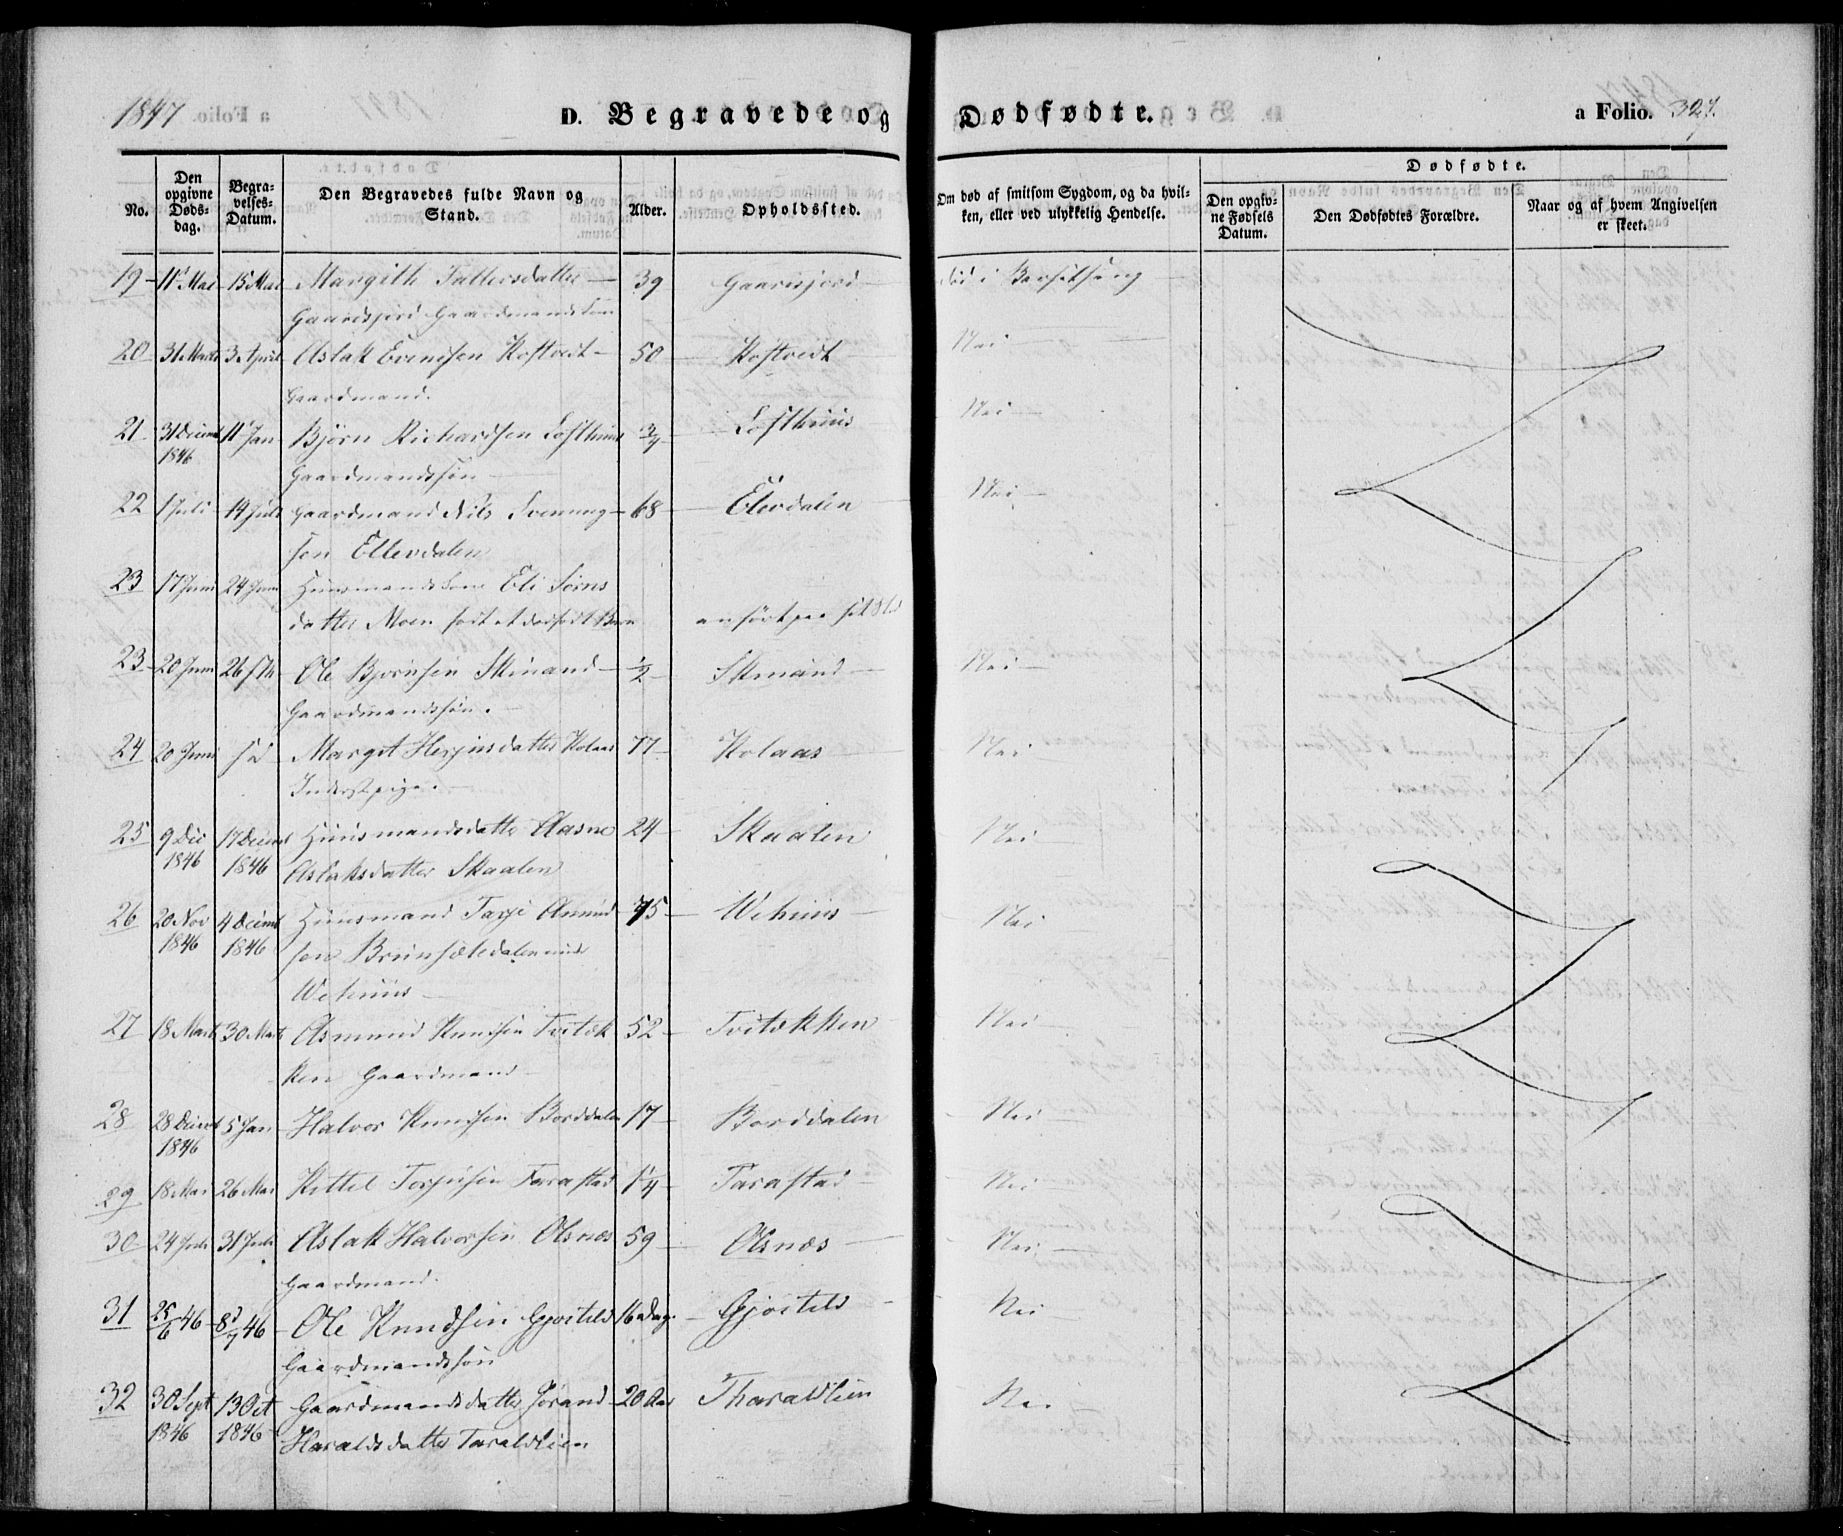 1847
D. Begravede og Dødfødte.
a Folio. 327.
No.
Den opgivne Døds-dag.
Begra-velses-Datum.
Den Begravedes fulde Navn og Stand.
Alder.
Opholdssted.
Om død af smitsom Sygdom, og da hvil-ken, eller ved ulykkelig Hendelse.
Dødfødte.
Den opgiv-ne Fødsels Datum.
Den Dødfødtes Forældre.
Naar og af hvem Angivelsen er skeet.
19 11 Mai 15 Mai Margith Tallevsdatter 39 Gaarsjord død i Barselseng
Gaardsjord Gaardmands
20 31 Marts 3 April Aslak Evensen Rostvedt 50 Rostvedt Nei
Gaardmand.
21 31 Decemb 11 Jan Bjørn Richardsen Lofthuus 3/4 Lofthuus Nei
1846 Gaardmandssøn
22 1 Juli 14 Juli Gaardmand Nils Svenning 68 Elevdalen Nei
sen Ellevdalen
23 17 Juni 24 Juni Huusmands Eli
datter Moen født et dødfødt Barn anført paa sit Sted
23 20 Juni 26 Ole Bjørnsen Skinand 1/2 Skinand Nei
Gaardmandssøn.
24 20 Juni Margit datter Rolaas 77 Rolaas Nei
25 9 Dec 17 Decemb Huusmandsdatter Aasne 24 Skaalen Nei
1846 1846 Aslaksdatter Skaalen
26 20 Nov 4 Decemb Huusmand Tarje Asmund 75 Wehuus Nei
1846 1846 sen
Wehuus
27 18 Marts 30 Marts Asmund Knudsen Tvitæk 52 Tvitækken Nei
ken Gaardmand
28 28 Decemb 5 Jan Halvor Knudsen Borddalen 17 Borddalen Nei
1846
29 18 Mai 26 Mai Kittel Torjusen Tarastad 1/4 Tarastad Nei
30 24 Juli 31 Juli Aslak Halvorsen Olsnæs 59 Olsnæs Nei
Gaardmand.
31 25/6 46 Ole Knudsen Gjvetild 16 Dag. Nei
Gaardmandssøn
32 30 Sept 13 Oct Gaardmandsdatter Jorand 20 Aar Tharaldlien Nei
1846 1846 Haraldsdatter Taraldlien